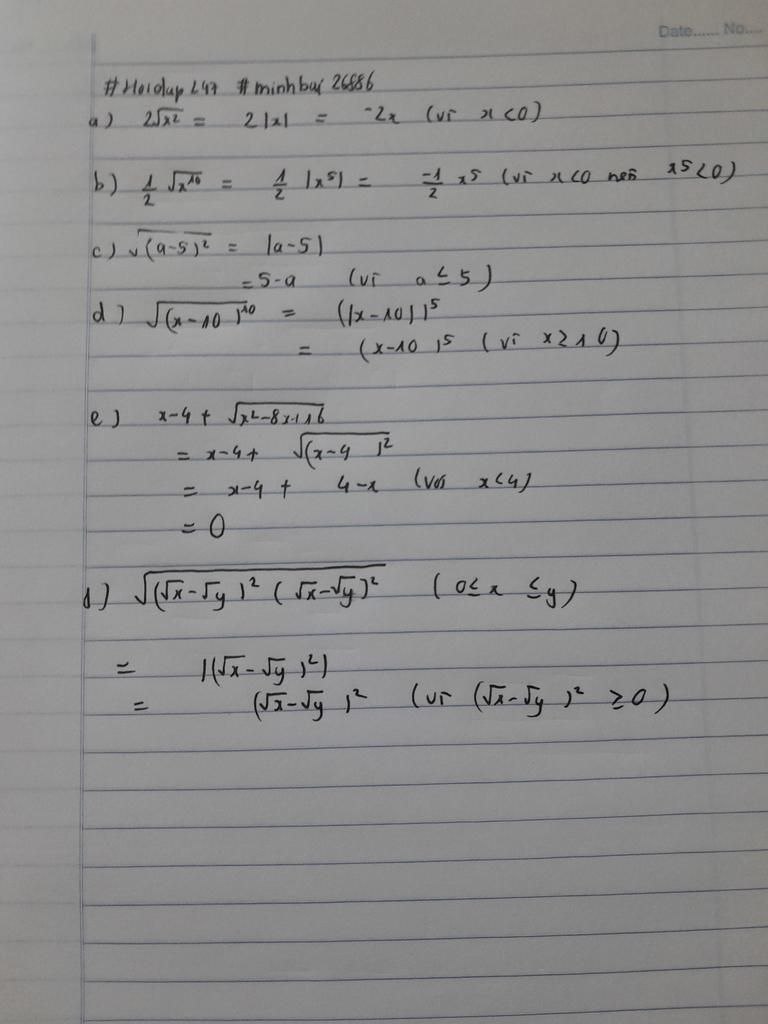 Date...... No....
#Hoidap247 #minhbui 26886
a) 2√x² = 2|x| = -2x (vì x<0)
b) 1/2 √x¹⁰ = 1/2 |x⁵| = -1/2 x⁵ (vì x<0 nên x⁵<0)
c) √(a-5)² = |a-5|
= 5-a (vì a ≤ 5)
d) √(x-10)¹⁰ = (|x-10|)⁵
= (x-10)⁵ (vì x≥10)
e) x-4 + √x²-8x+16
= x-4+ √(x-4)²
= x-4 + 4-x (với x<4)
= 0
f) √(√x-√y)² (√x-√y)² (0≤ x ≤y)
= |(√x-√y)²|
= (√x-√y)² (vì (√x-√y)² ≥0)